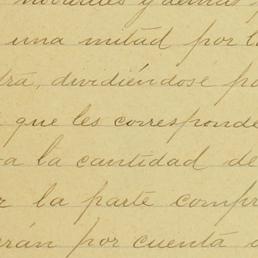 y demás
una mitad por l
dividiéndose po
que les corresponde
a la cantidad de
la parte compr
erán por cuenta d